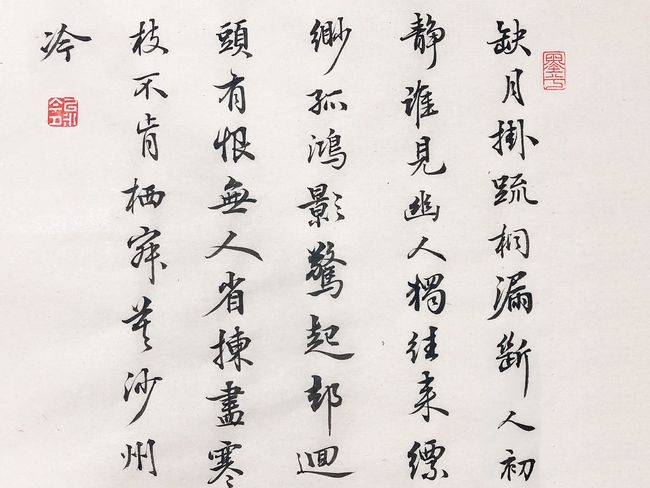 缺月掛疏桐漏斷人初
静誰見幽人獨往来縹
緲孤鴻影驚起却迴
頭有恨無人省揀盡寒
枝不肯栖寂莫沙州
冷